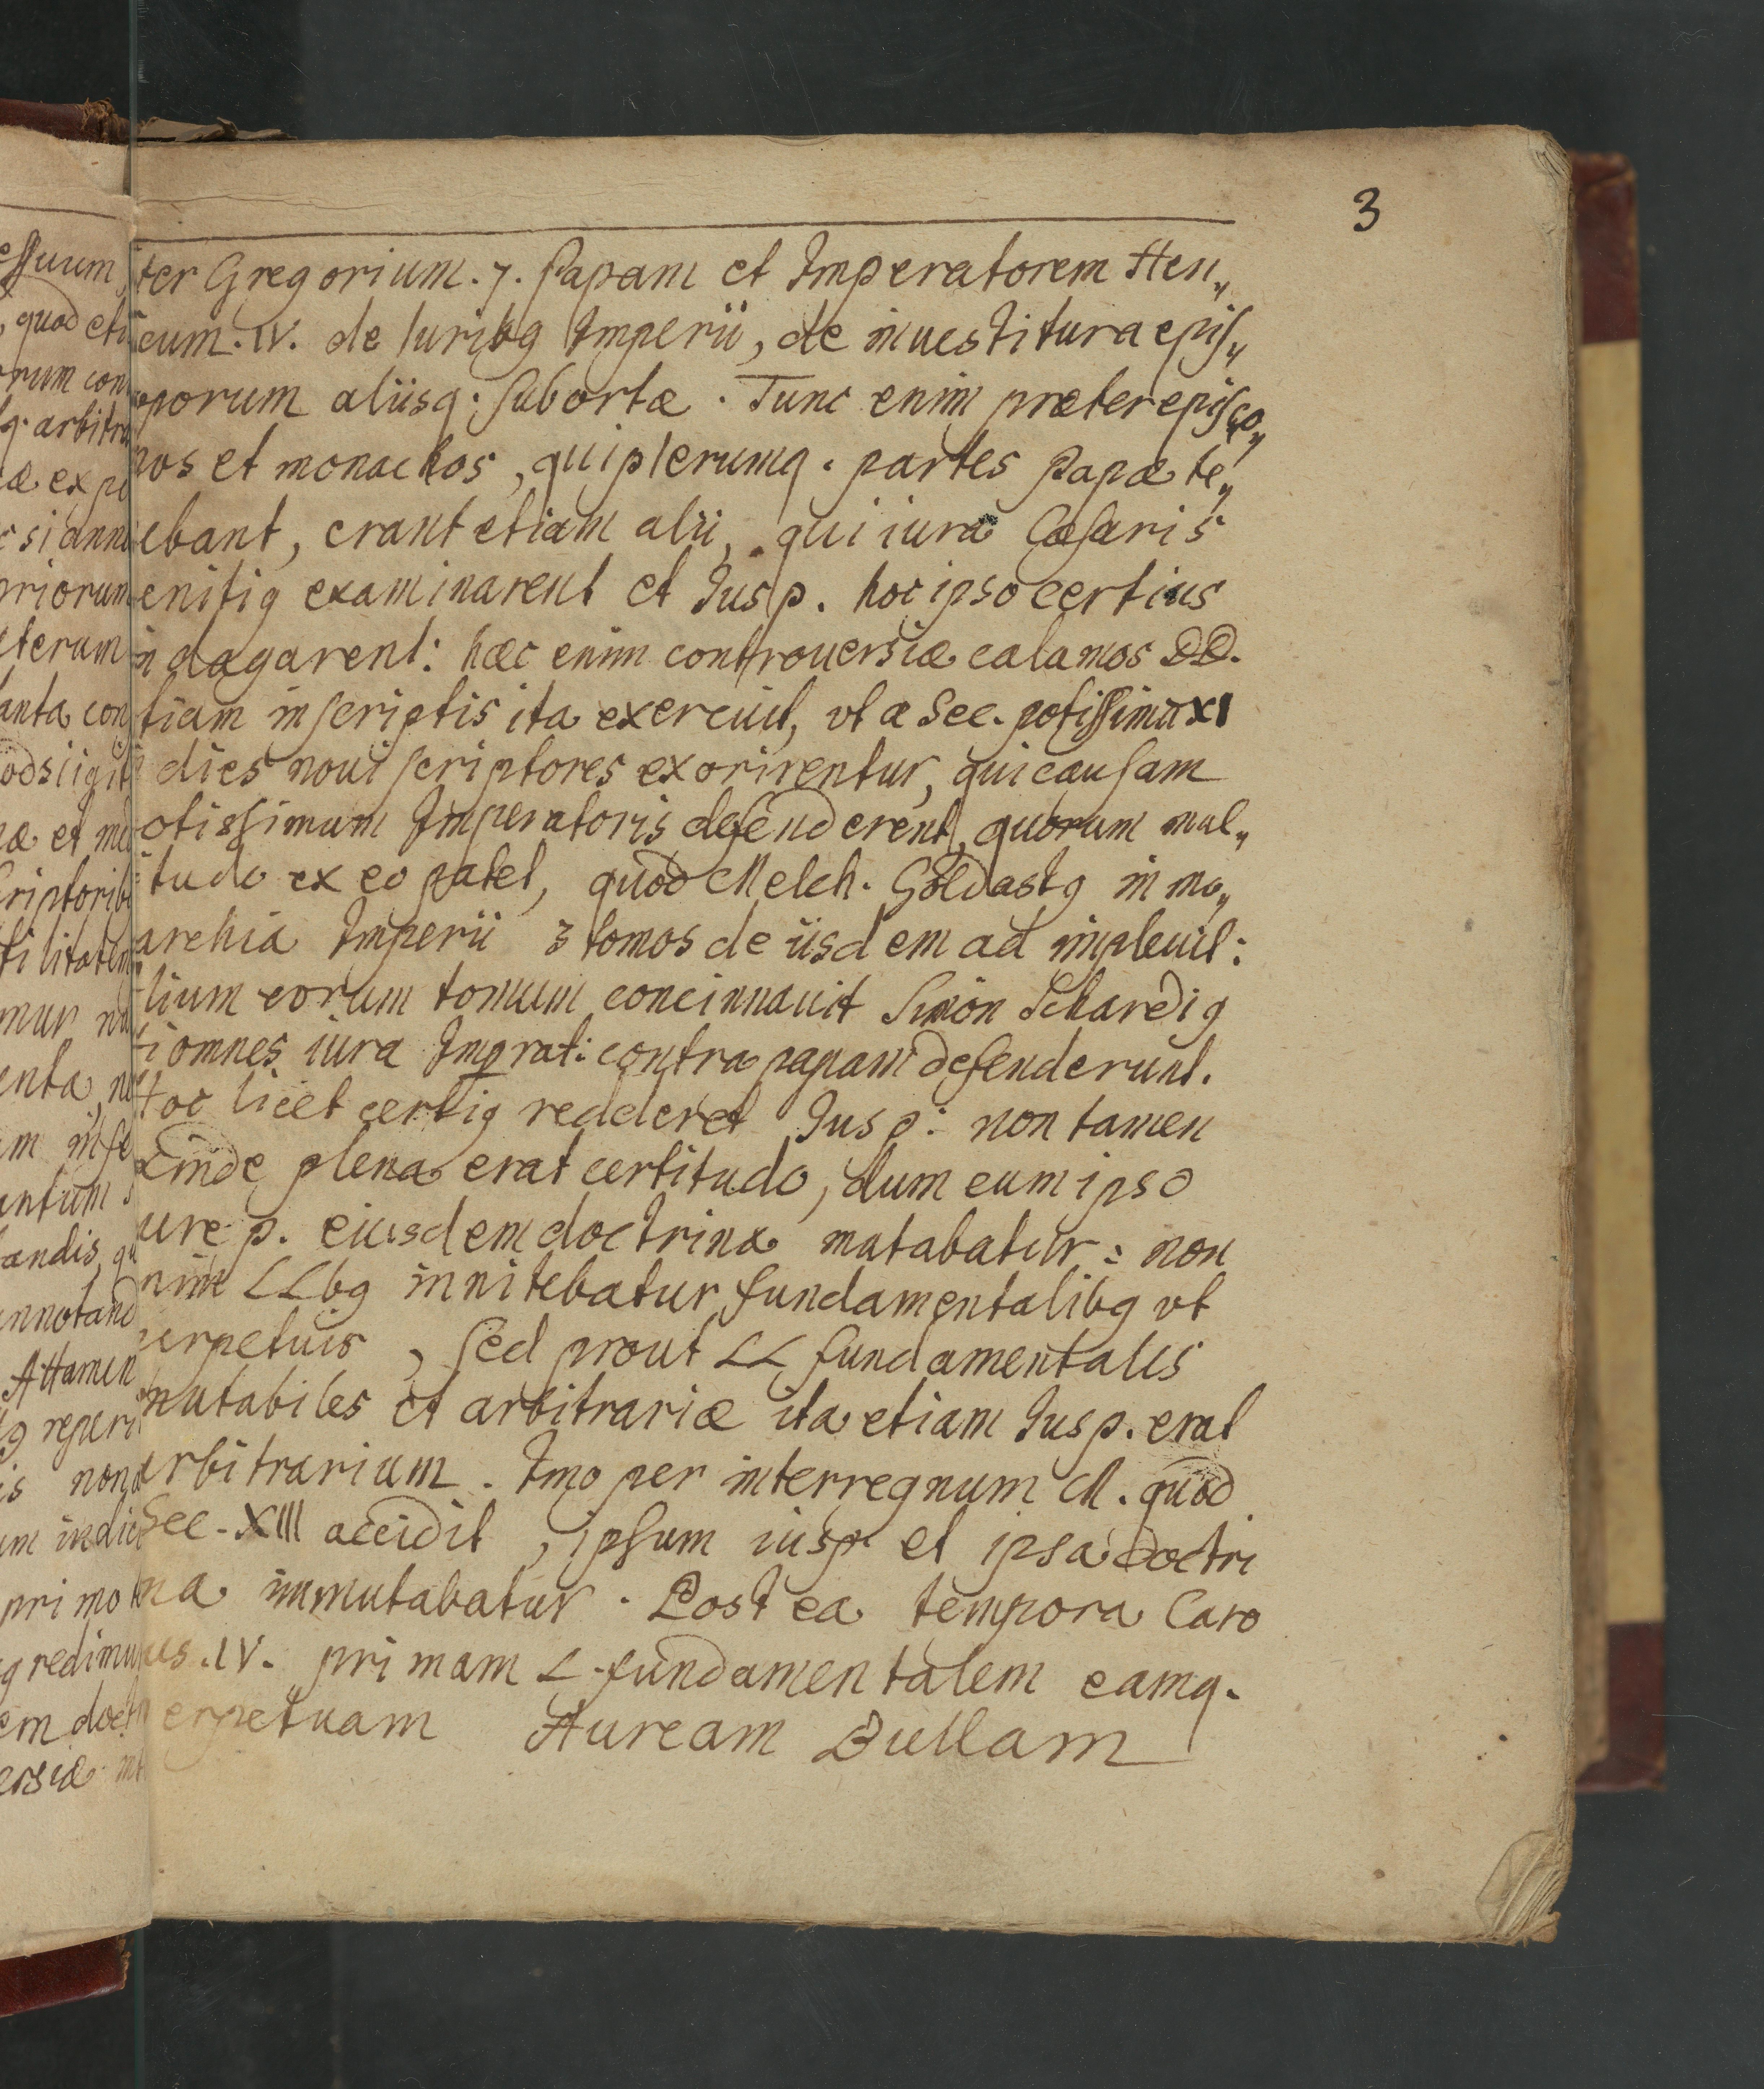 3
ter Gregorium. 7. Papam et Imperatorem Hen„
cum. IV. de Iuribg Imperii, de inuestitura epis„
porum aliisq. subortæ. Tunc enim præter episco„
pos et monachos, qui plerumq. partes Papæ te„
ebant, erant etiam alii, qui iura Cæsaris
enitig examinarent et Jus p. hoc ipso certius
indagarent: hæc enim controuersiæ calamos DD.
tiam in scriptis ita exercuit, vt a Sec. potissimū XI
dies noui scriptores exorirentur, qui causam
otissimum Imperatoris defenderent, quorum mul„
tudo ex eo patet, quod Melch. Goldastg in mo„
archia Imperii 3 tomos de iisdem ad impleuit:
lium eorum tomum concinnauit Simon Schardig
i omnes iura Imprat: contra papam defenderunt.
Hoc licet certig redderet Jus p: non tamen
Einde plena erat certitudo, dum cum ipso
ure p. eiusdem doctrina mutabatur: non
nim LLbg innitebatur fundamentalibg vt
erpetuis, sed prout LL fundamentales
mutabiles et arbitrariæ ita etiam Jus p. erat
arbitrarium. Imo per interregnum M. quod
Sec. XIII accidit, ipsum ius p et ipsa doctri
na immutabatur. Post ea tempora Caro
us. IV. primam L. fundamentalem eamq.
erpetuam Auream Bullam